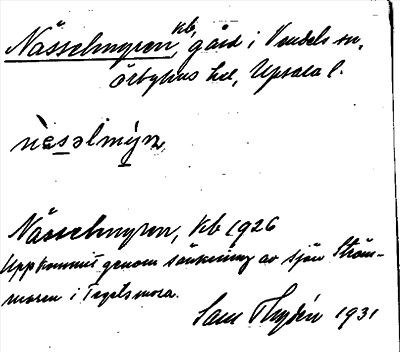 Nässelmyren, kb, gård i Vendels sn,
Örbyhus hd, Upsala l.
nɛ̀səlmẏrn,
Nässelmyren, kb 1926
Uppkommit genom sänkning av sjön Ström-
maren i Tegelsmora.
Sam Thydén 1931